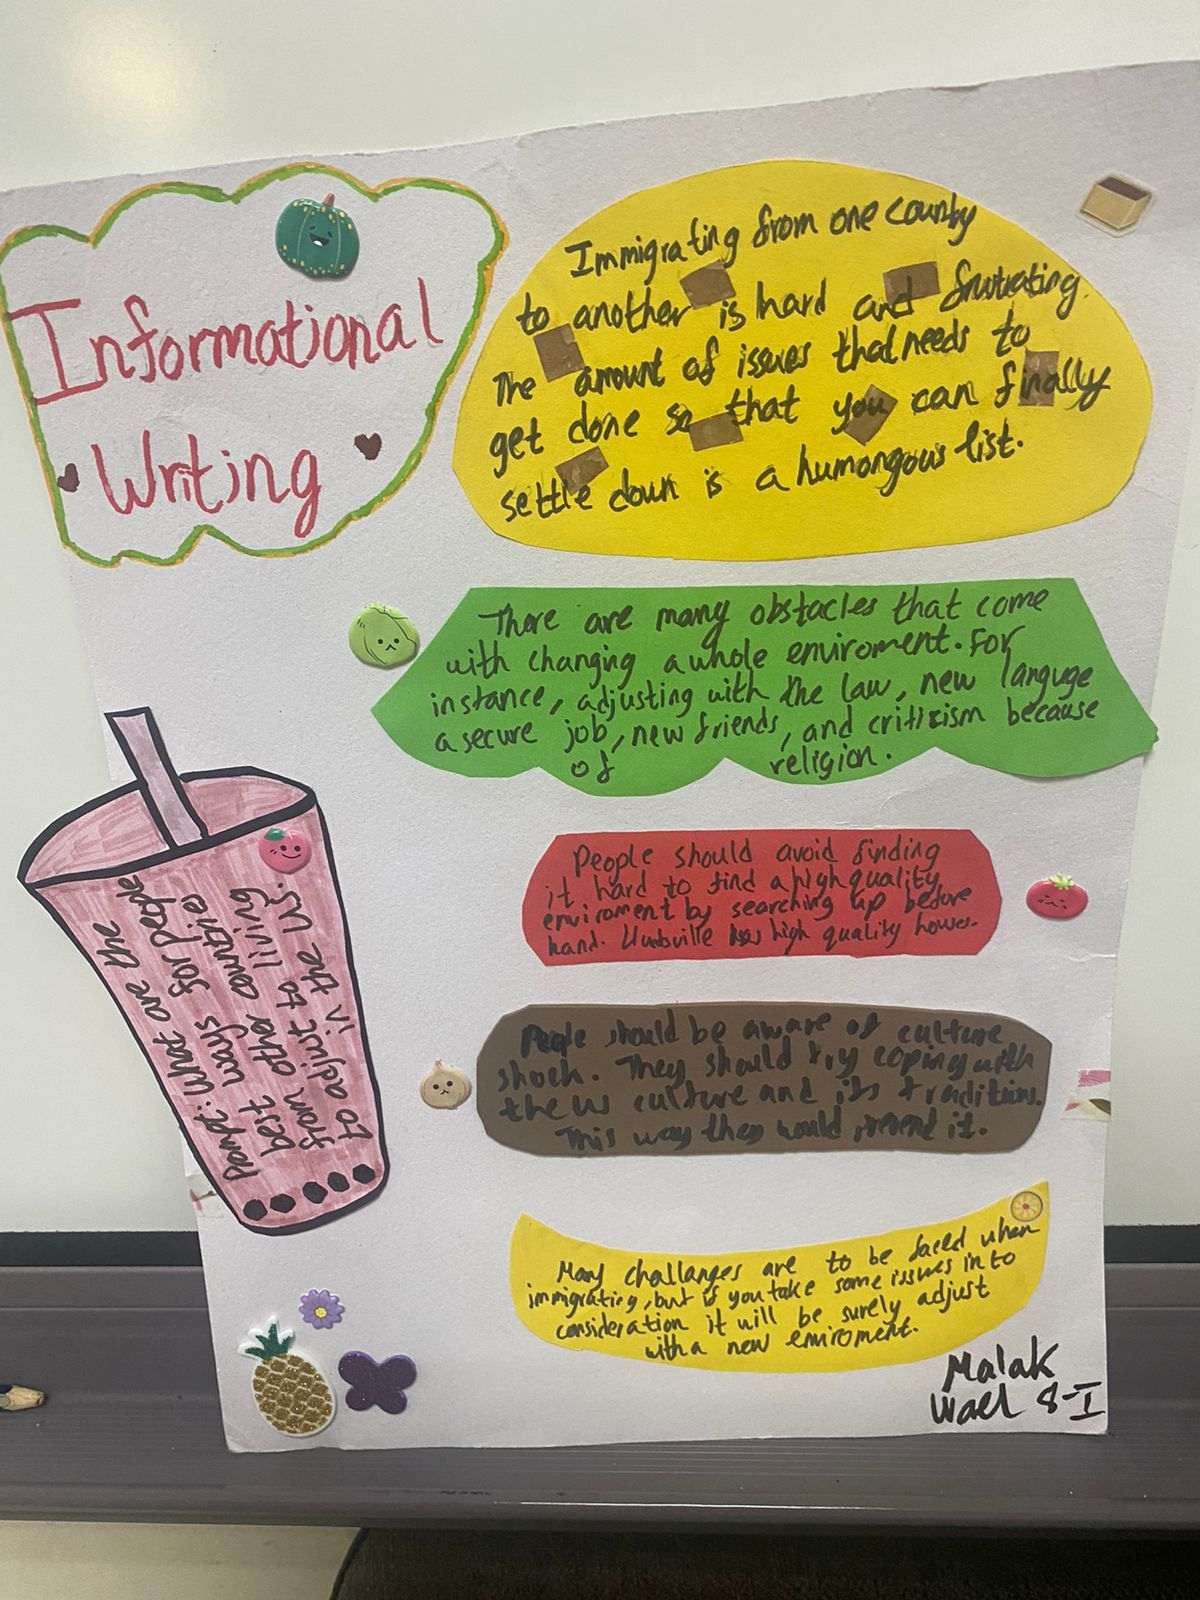 Informational
Writing
Immigrating from one country
to another is hard and frustrating.
The amount of issues that needs to
get done so that you can finally
settle down is a humongous list.
There are many obstacles that come
with changing a whole enviroment. For
instance, adjusting with the law, new languge
a secure job, new friends, and critizism because
of religion.
People should avoid finding
it hard to find a high quality
enviroment by searching up before
hand. has high quality
People should be aware of culture
shock. They should try coping with
the us culture and its traditions.
This way they would prevent it.
Many challanges are to be faced when
immigrating, but if you take some issues in to
consideration it will be surely adjust
with a new enviroment.
Prompt: What are the
best ways for people
from other countries
to adjust to living
in the US.
Malak
Wael 8-I